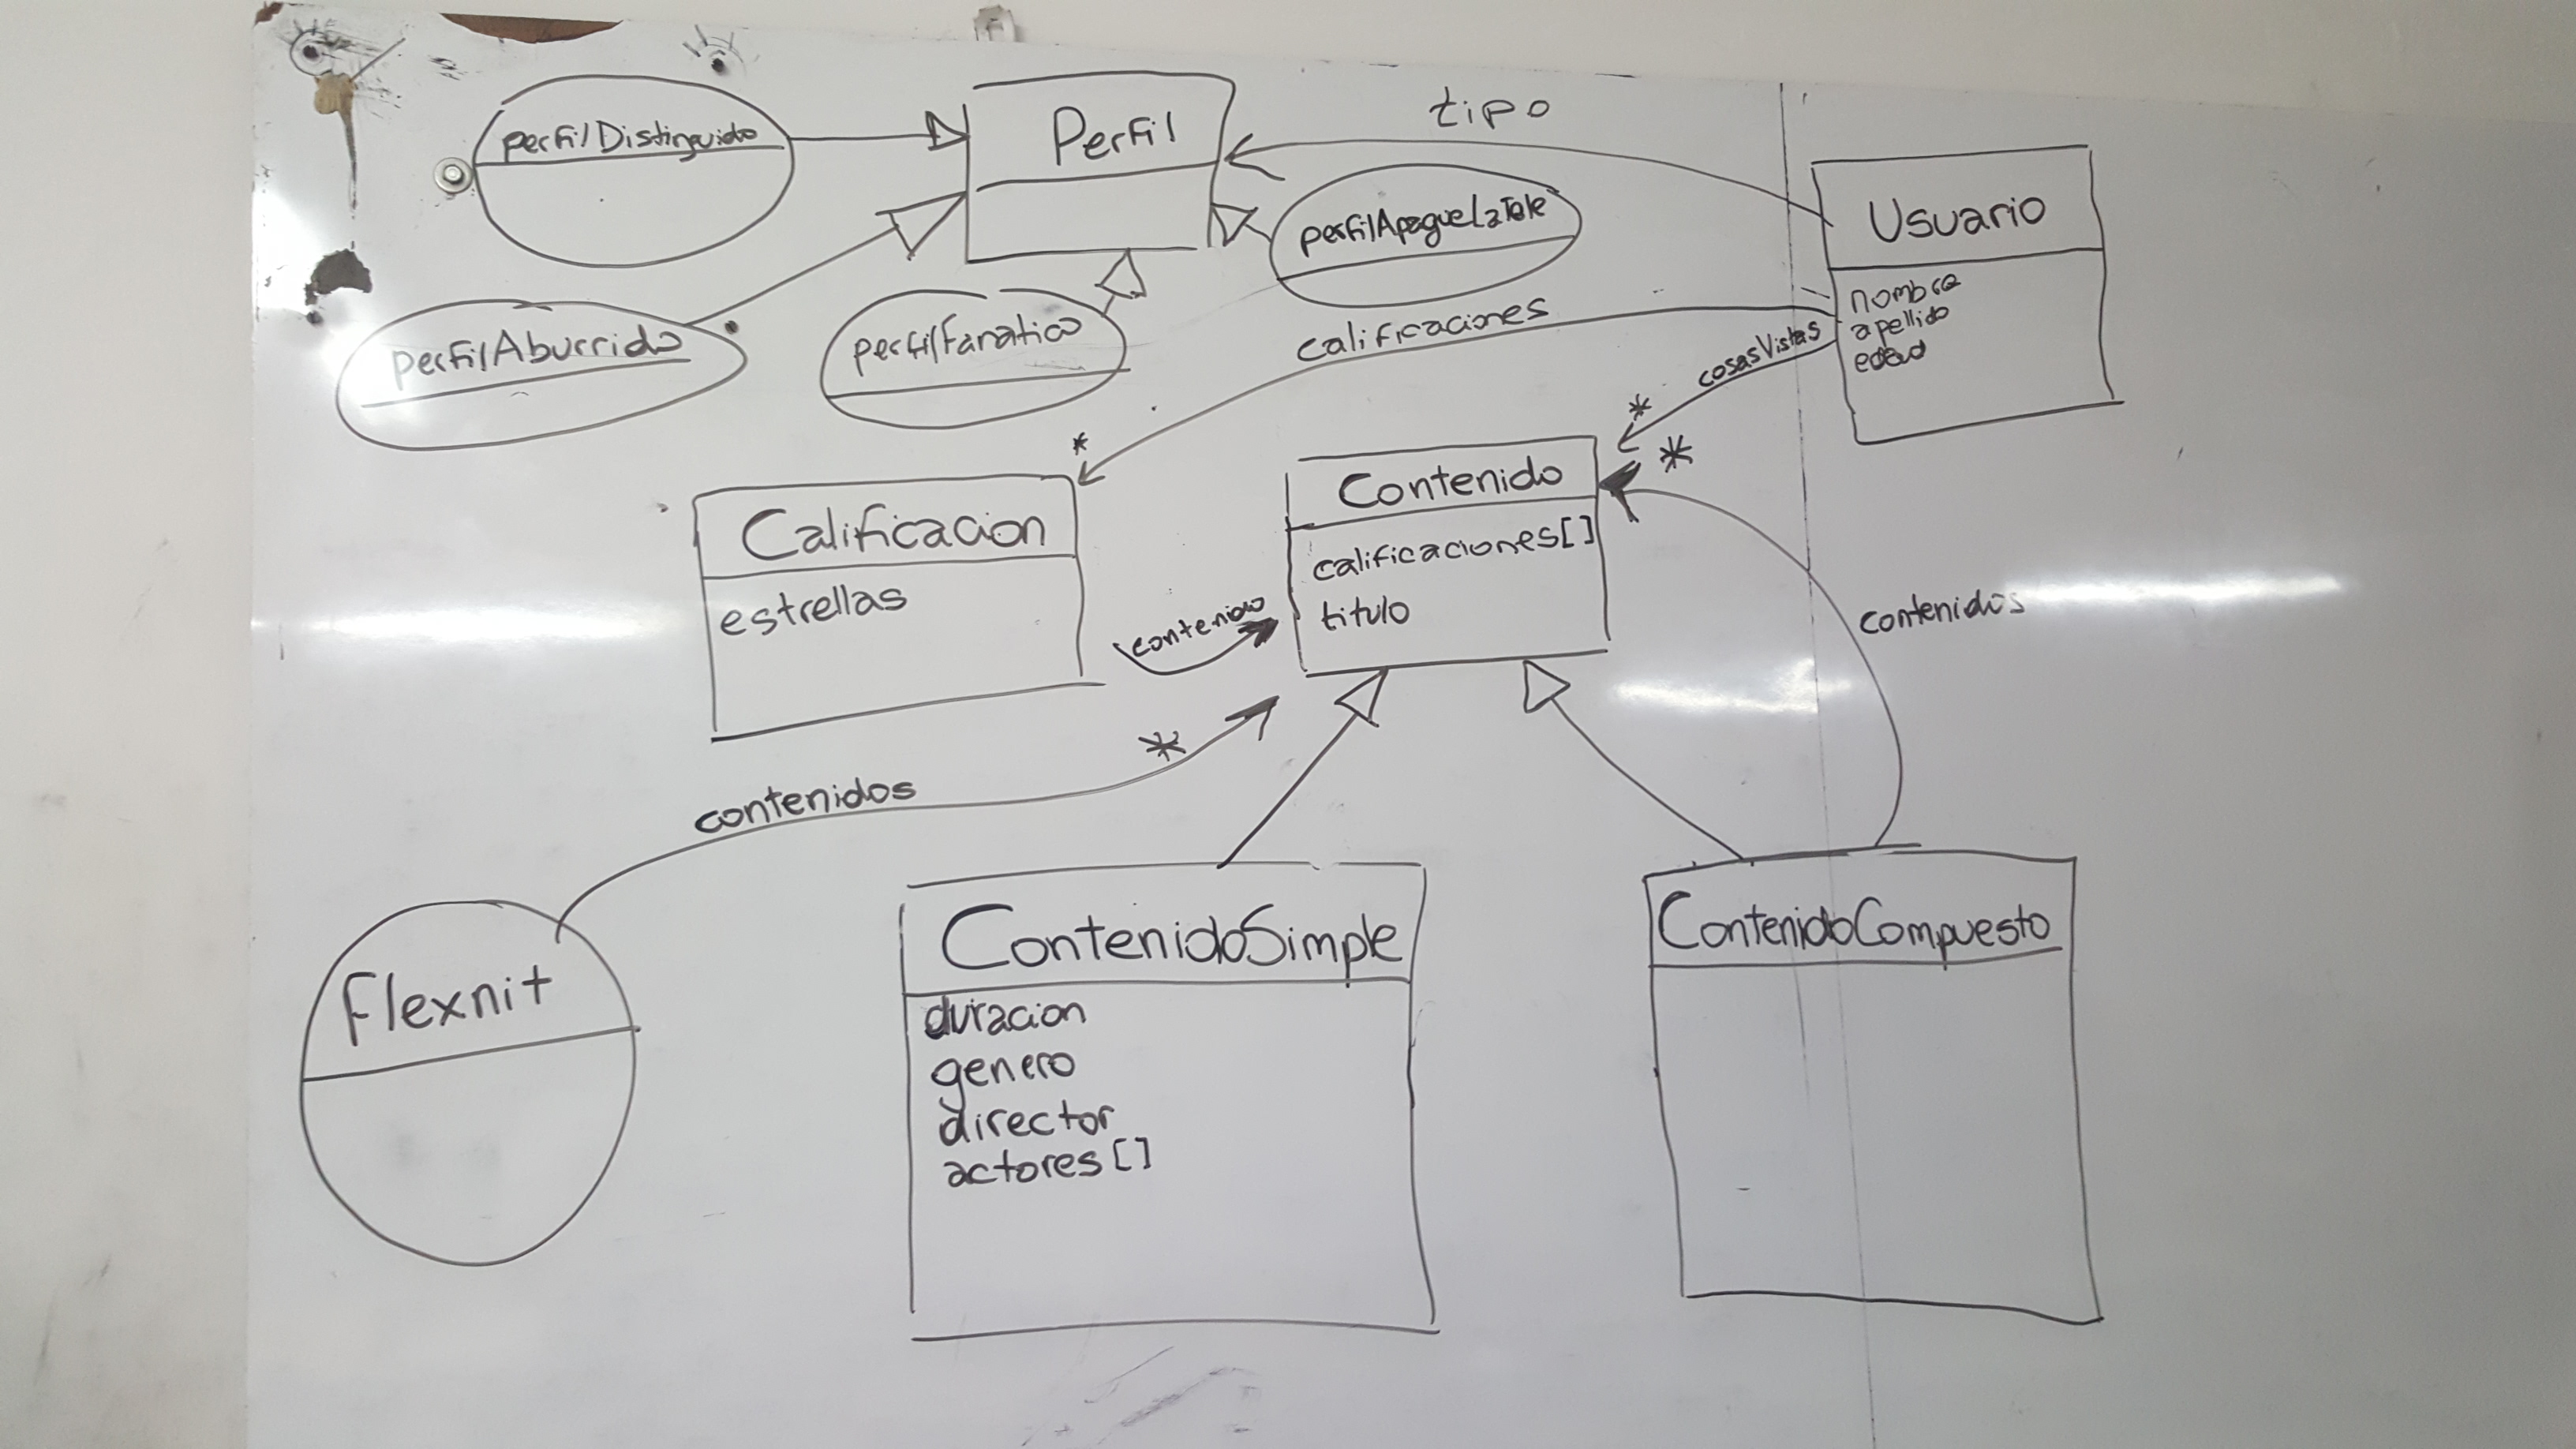 perfilDistinguido
Perfil
tipo
perfilApagueLaTele
Usuario
nombre
apellido
edad
perfilAburrido
perfilFanatico
calificaciones
cosasVistas
*
*
*
Calificacion
estrellas
Contenido
calificaciones[]
titulo
contenido
contenidos
*
contenidos
Flexnit
ContenidoSimple
duracion
genero
director
actores[]
ContenidoCompuesto